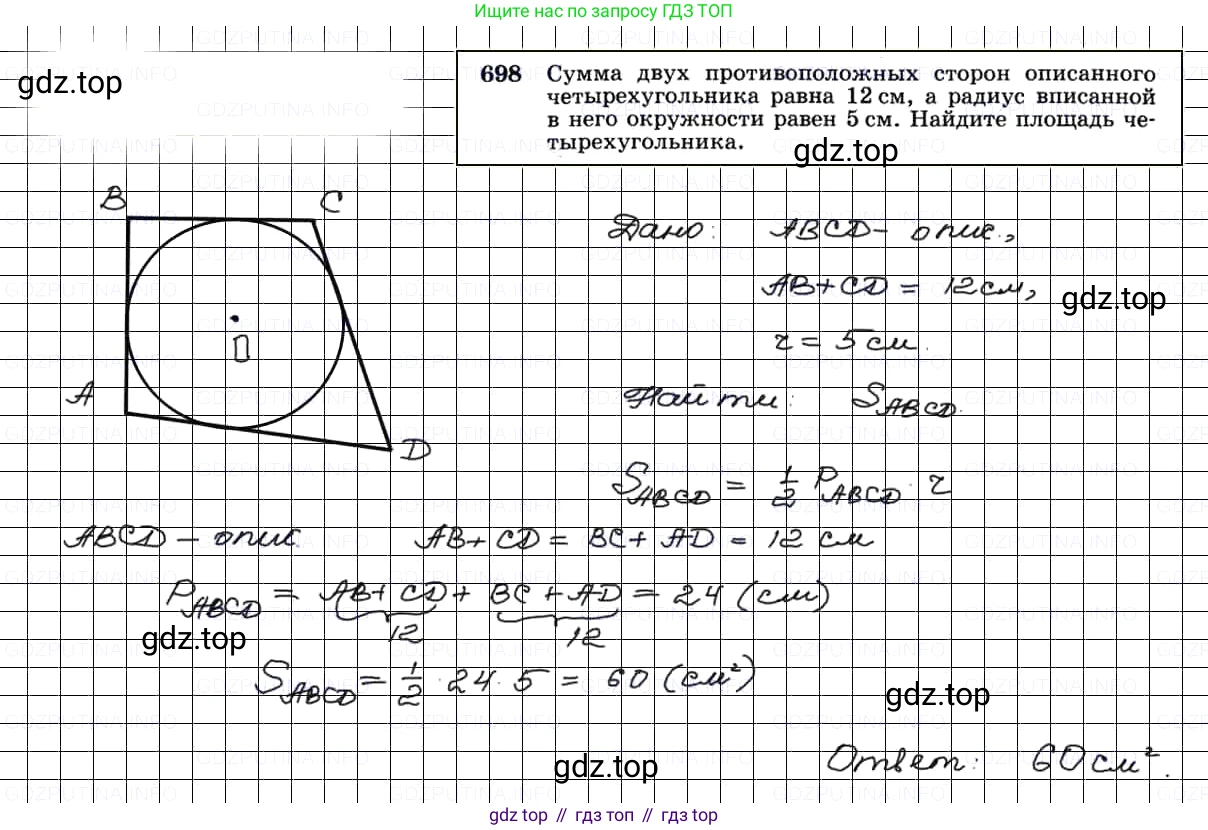 Ищите нас по запросу ГДЗ ТОП
GDZPUTINA.INFO
gdz.top
698 Сумма двух противоположных сторон описанного
четырехугольника равна 12 см, а радиус вписанной
в него окружности равен 5 см. Найдите площадь че-
тырехугольника.
gdz.top
B C
A
D
O
Дано: ABCD – опис.,
AB + CD = 12 см,
gdz.top
r = 5 см.
Найти: S_ABCD.
S_ABCD = 1/2 P_ABCD · r
ABCD – опис. AB + CD = BC + AD = 12 см
P_ABCD = AB + CD + BC + AD = 24 (см)
12 12
gdz.top
S_ABCD = 1/2 · 24 · 5 = 60 (см²)
gdz.top
Ответ: 60 см².
gdz.top
gdz top // гдз топ // gdz.top // гдз top